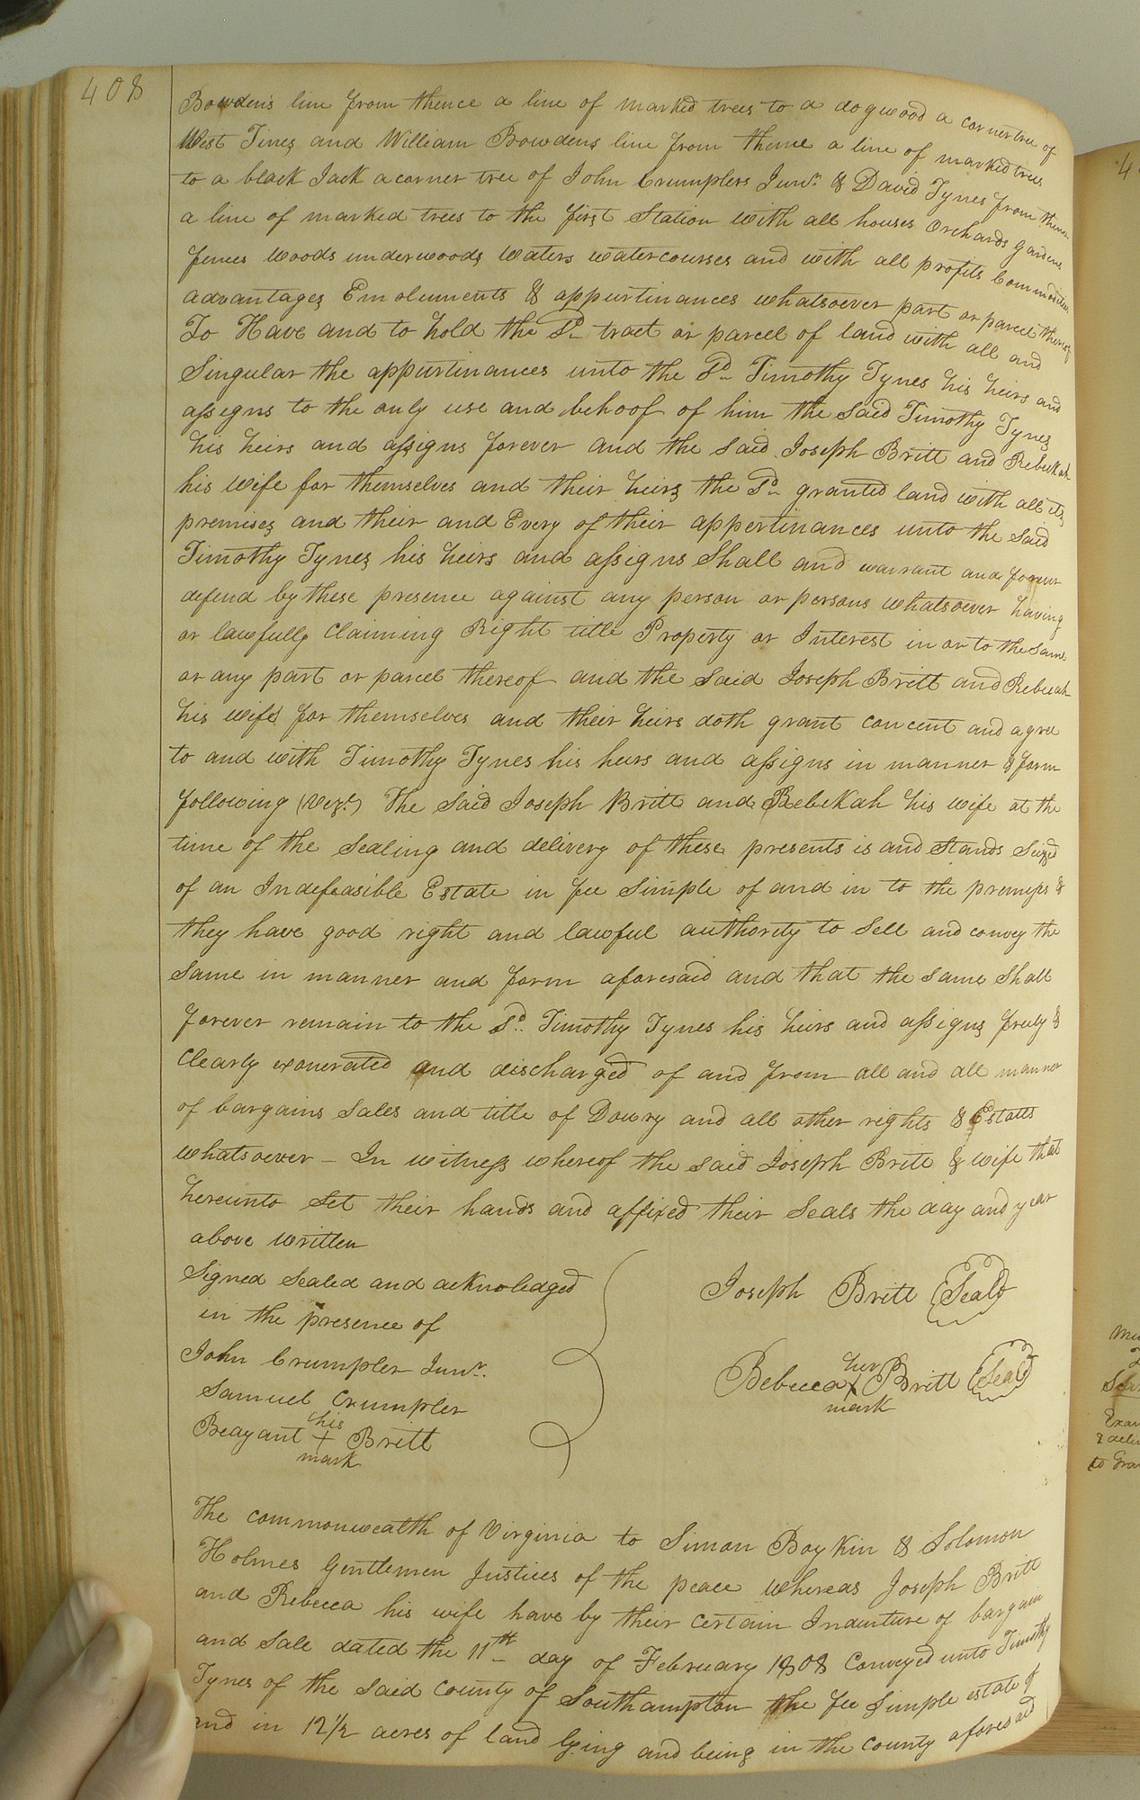 408
Bowdens line from thence a line of marked trees to a dogwood a corner tree of
West Tines and William Bowdens line from thence a line of marked trees
to a black Jack a corner tree of John Crumplers Junr. & David Tynes from thence
a line of marked trees to the first Station with all houses Orchards gardens
fences woods underwoods waters watercourses and with all profits Commodities
advantages Emoluments & appurtinances whatsoever part or parcel thereof
To Have and to hold the Sd. tract or parcel of land with all and
Singular the appurtinances unto the Sd. Timothy Tynes his heirs and
assigns to the only use and behoof of him the Said Timothy Tynes
his heirs and assigns forever and the Said Joseph Britt and Rebekah
his wife for themselves and their heirs the Sd. granted land with all its
premises and their and Every of their appertinances unto the Said
Timothy Tynes his heirs and assigns Shall and warrant and forever
defend by these presence against any person or persons whatsoever having
or lawfully Claiming Right title Property or Interest in or to the Same
or any part or parcel thereof and the Said Joseph Britt and Rebecah
his wife for themselves and their heirs doth grant concent and agree
to and with Timothy Tynes his heirs and assigns in manner & form
following (Vizt.) The Said Joseph Britt and Rebekah his wife at the
time of the Sealing and delivery of these presents is and Stands Seized
of an Indefeasible Estate in fee Simple of and in to the premises &
they have good right and lawful authority to Sell and convey the
Same in manner and form aforesaid and that the Same Shall
forever remain to the Sd. Timothy Tynes his heirs and assigns freely &
Clearly exonerated and discharged of and from all and all manner
of bargains Sales and title of Dowry and all other rights & Estates
whatsoever – In witness whereof the said Joseph Britt & wife that
hereunto Set their hands and affixed their Seals the day and year
above written
Signed Sealed and acknoledged
in the presence of
Joseph Britt Seal
John Crumpler Junr.
Samuel Crumpler
her
Bebecca X Britt Seal
mark
his
Beayant + Britt
mark
The commonwealth of Virginia to Simon Boykin & Solomon
Holmes Gentlemen Justices of the peace whereas Joseph Britt
and Rebecca his wife have by their Certain Indenture of bargain
and Sale dated the 11th day of February 1808 Conveyed unto Timothy
Tynes of the Said County of Southampton the fee Simple estate of
and in 12 1/2 acres of land lying and being in the County aforesaid